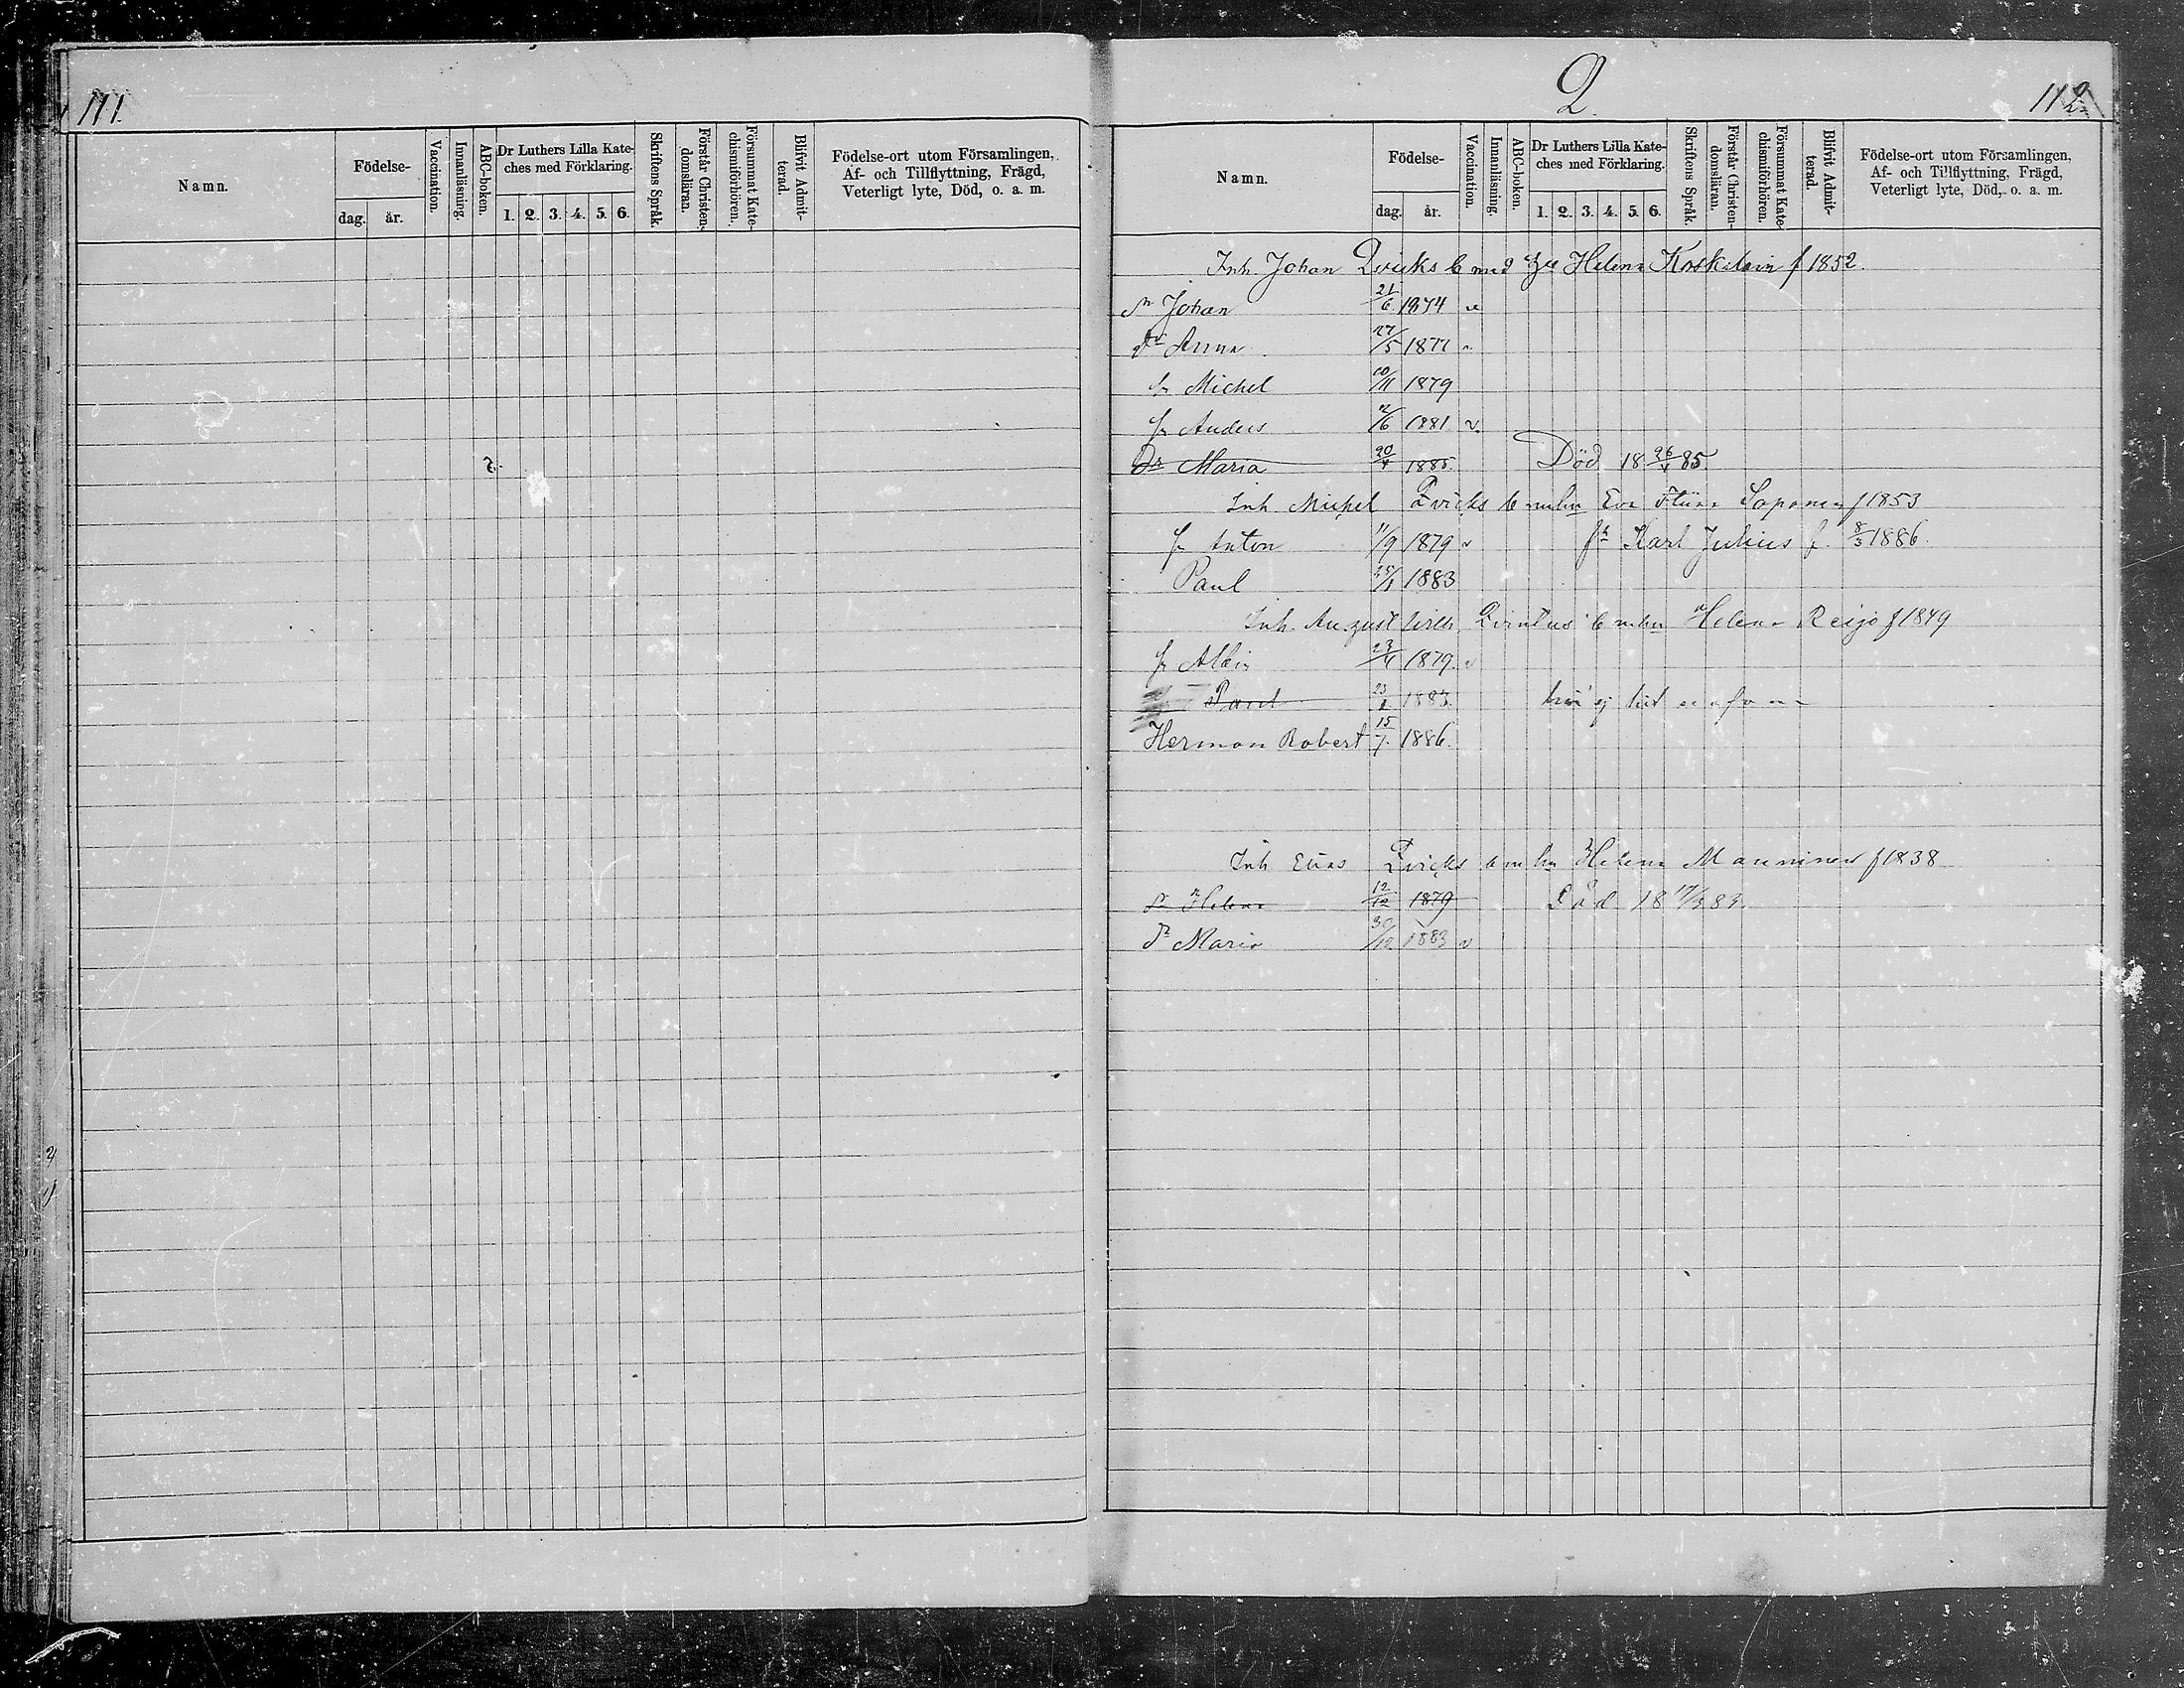 111.
Namn.
Födelse-
dag.
år.
Vaccination.
Innanläsning.
ABC-boken.
Dr Luthers Lilla Kate-
ches med Förklaring.
1. 2. 3. 4. 5. 6.
Skriftens Språk.
Förstår Christen-
domsläran.
Försummat Kate-
chismiförhören.
Blifvit Admit-
terad.
Födelse-ort utom Församlingen,
Af- och Tillflyttning, Frägd,
Veterligt lyte, Död, o. a. m.
Q
112
Namn.
Födelse-
dag.
år.
Vaccination.
Innanläsning.
ABC-boken.
Dr Luthers Lilla Kate-
ches med Förklaring.
1. 2. 3. 4. 5. 6.
Skriftens Språk.
Förstår Christen-
domsläran.
Försummat Kate-
chismiförhören.
Blifvit Admit-
terad.
Födelse-ort utom Församlingen,
Af- och Tillflyttning, Frägd,
Veterligt lyte, Död, o. a. m.
Inh. Johan Qvicks b med Helena f 1852.
Sn Johan 21/6 1874 v
Dr Anna 27/5 1877
Sn Michel 10/11 1879
Sn Anders 1881 v.
Dr Maria 20/4 1885. Död 18 26/4 85
Inh. Michel Qvicks b m hu Eva Saponen f 1853
Sn Anton 11/9 1879 v Sn Karl Julius f. 8/3 1886.
Paul 25/1 1883
Inh. August b m hu Helena Reijo f 1849
Sn Albin 1879. v
Paul 23/1 1883. ej
Herman Robert 15/7. 1886.
Inh Elias Qvicks b m hu Helena Manninen f 1838
Dr Helena 12/12 1879 Död 18 17/3 83.
Dr Maria 30/12 1883 v